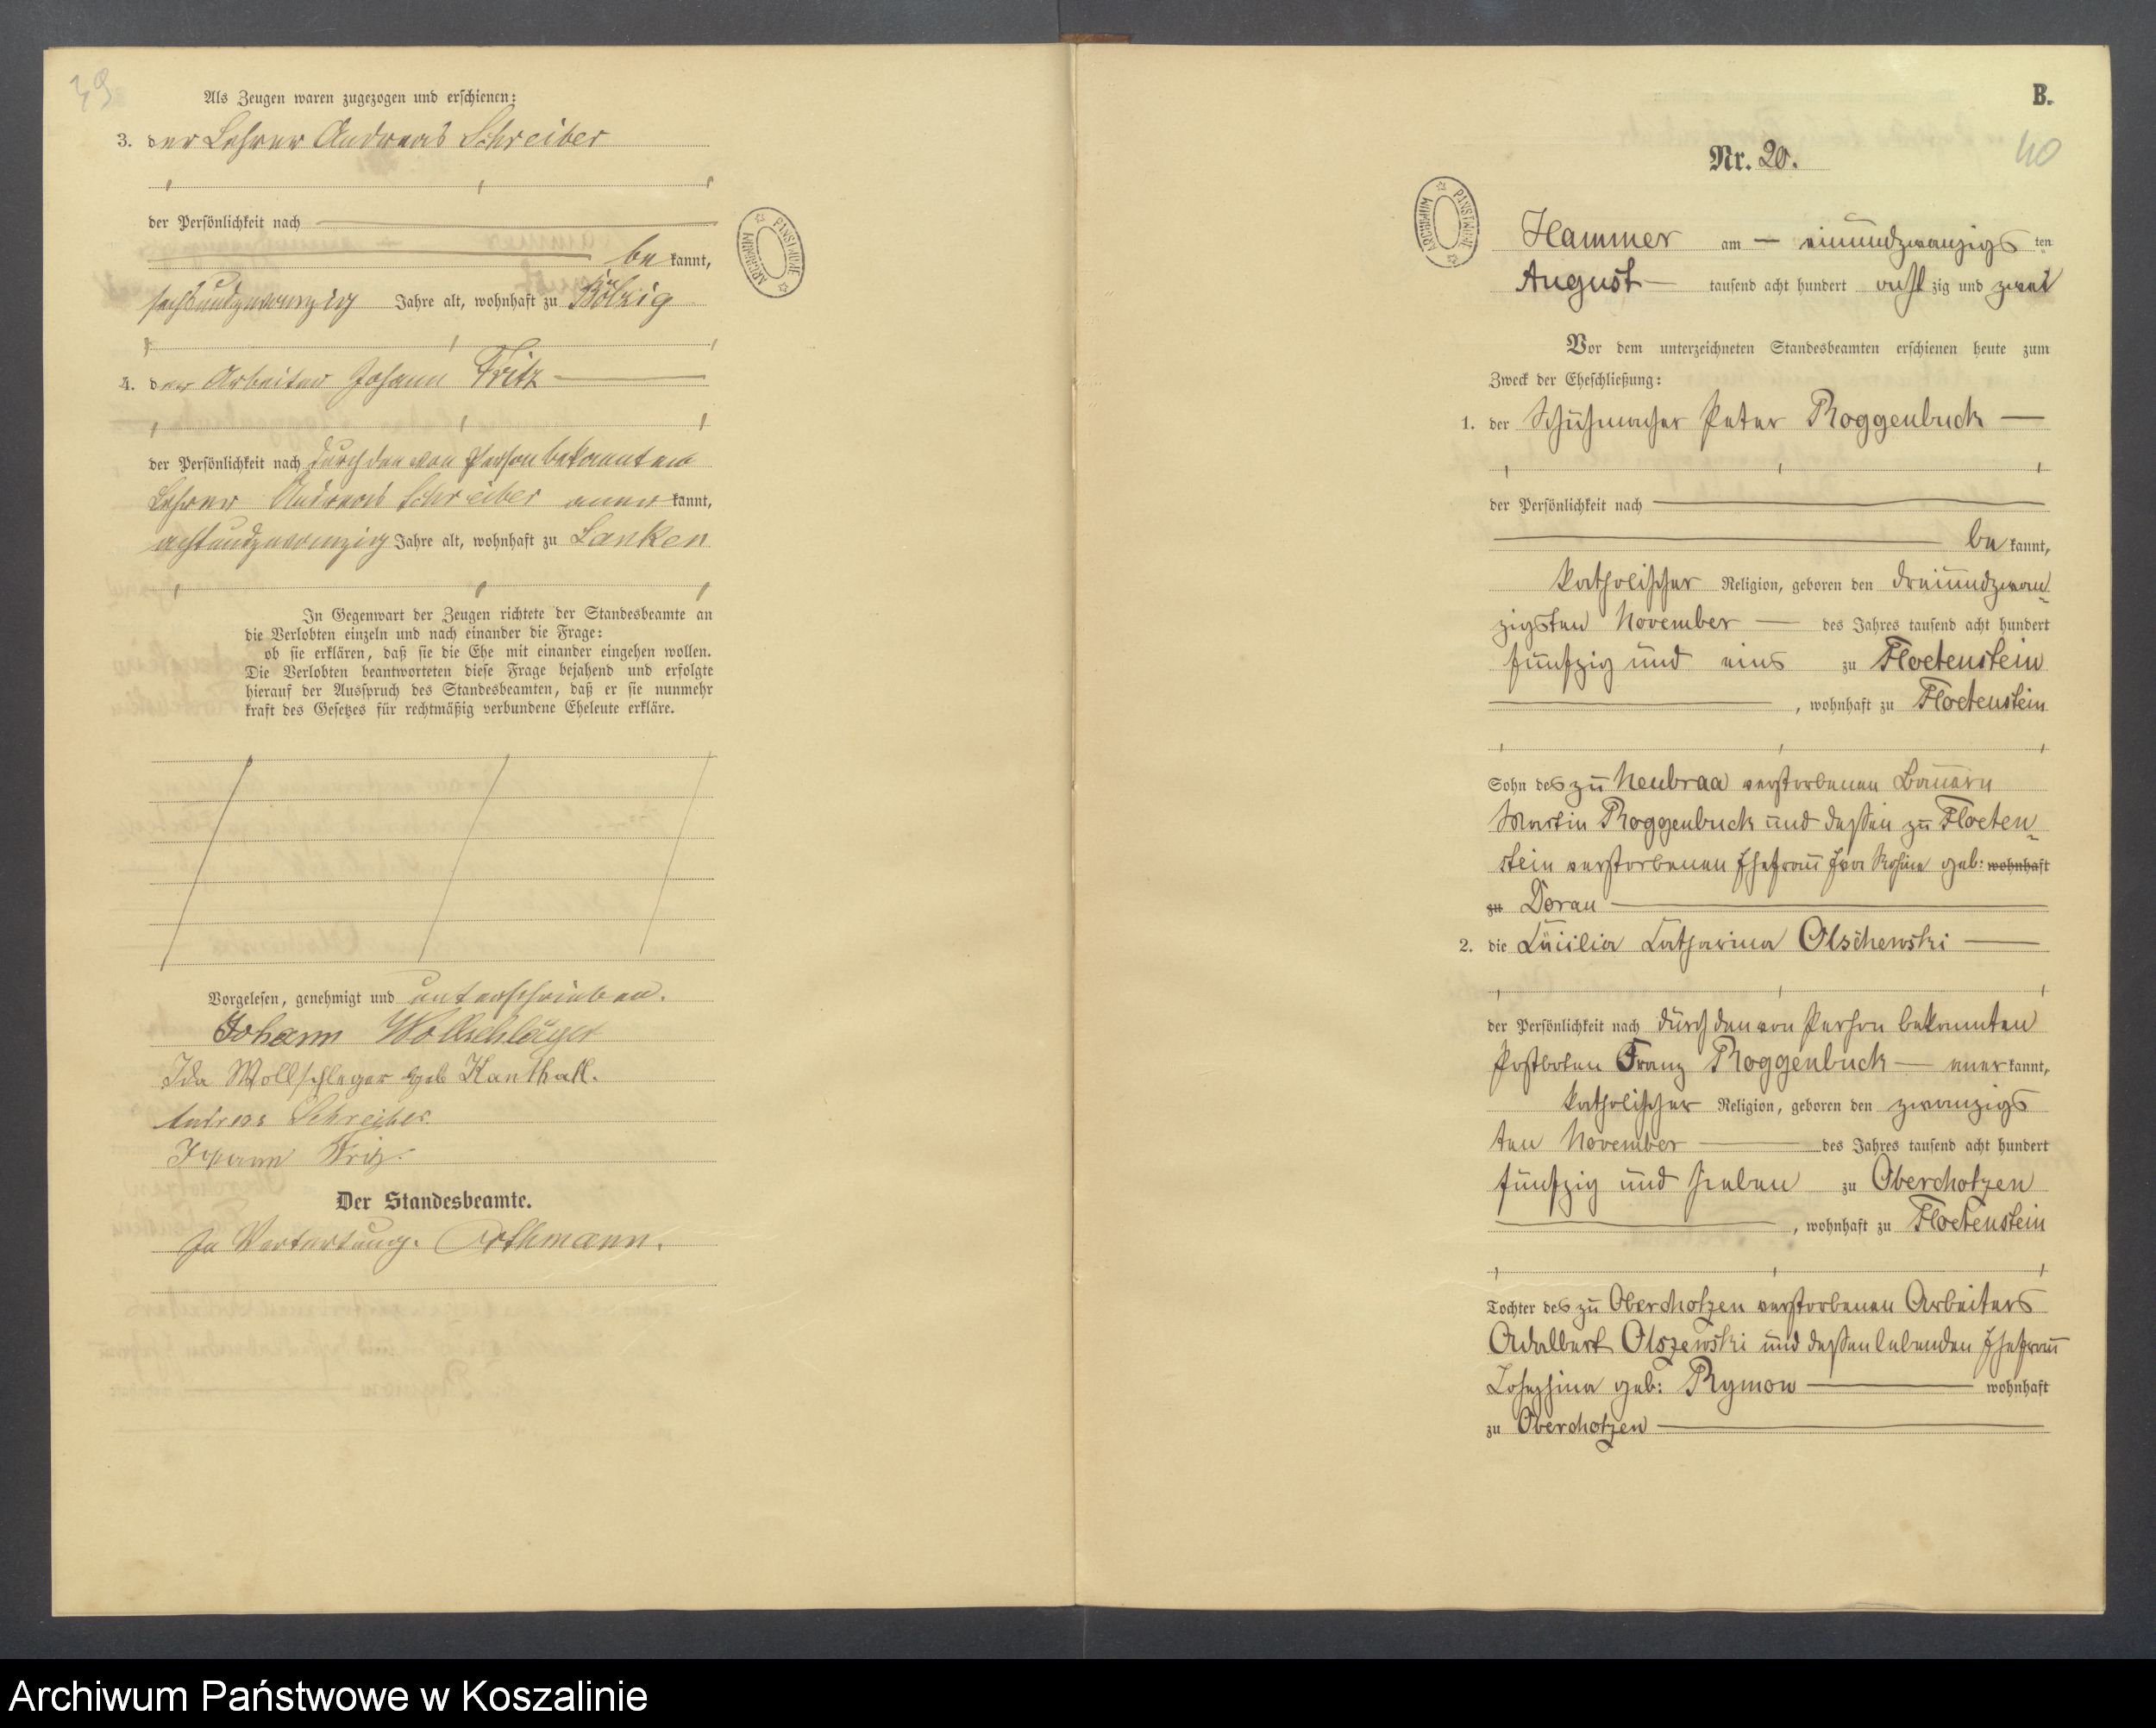 39
Als Zeugen waren zugezogen und erschienen:
3. der Lehrer Andreas Schreiber
der Persönlichkeit nach
be kannt,
sechsundzwanzig Jahre alt, wohnhaft zu Bölzig
4. der Arbeiter Johann Fritz
der Persönlichkeit nach durch den von Person bekannten
Lehrer Andreas Schreiber aner kannt,
achtundzwanzig Jahre alt, wohnhaft zu Lanken
In Gegenwart der Zeugen richtete der Standesbeamte an
die Verlobten einzeln und nach einander die Frage:
ob sie erklären, daß sie die Ehe mit einander eingehen wollen.
Die Verlobten beantworteten diese Frage bejahend und erfolgte
hierauf der Ausspruch des Standesbeamten, daß er sie nunmehr
kraft des Gesetzes für rechtmäßig verbundene Eheleute erkläre.
Vorgelesen, genehmigt und unterschrieben.
Johann Wollschläger
Ida Wollschleger geb Kanthak.
Andreas Schreiber.
Johann Fritz.
Der Standesbeamte.
In Vertretung. Orthmann.
ARCHIWUM PAŃSTWOWE
B.
40
Nr. 20.
ARCHIWUM PAŃSTWOWE
Hammer am einundzwanzigs ten
August tausend acht hundert acht zig und zwei
Vor dem unterzeichneten Standesbeamten erschienen heute zum
Zweck der Eheschließung:
1. der Schuhmacher Peter Roggenbuck
der Persönlichkeit nach
be kannt,
katholischer Religion, geboren den dreiundzwan-
zigsten November des Jahres tausend acht hundert
fünfzig und eins zu Floetenstein
, wohnhaft zu Floetenstein
Sohn des zu Neubraa verstorbenen Bauern
Martin Roggenbuck und dessen zu Floeten-
stein verstorbenen Ehefrau Eva Rosina geb: wohnhaft
zu Dorau
2. die Cäcilia Catharina Olschewski
der Persönlichkeit nach durch den von Person bekannten
Postboten Franz Roggenbuck aner kannt,
katholischer Religion, geboren den zwanzigs
ten November des Jahres tausend acht hundert
fünfzig und sieben zu Oberchotzen
, wohnhaft zu Floetenstein
Tochter des zu Oberchotzen verstorbenen Arbeiters
Adalbert Olszewski und dessen lebenden Ehefrau
Josephina geb: Rymon wohnhaft
zu Oberchotzen
Archiwum Państwowe w Koszalinie